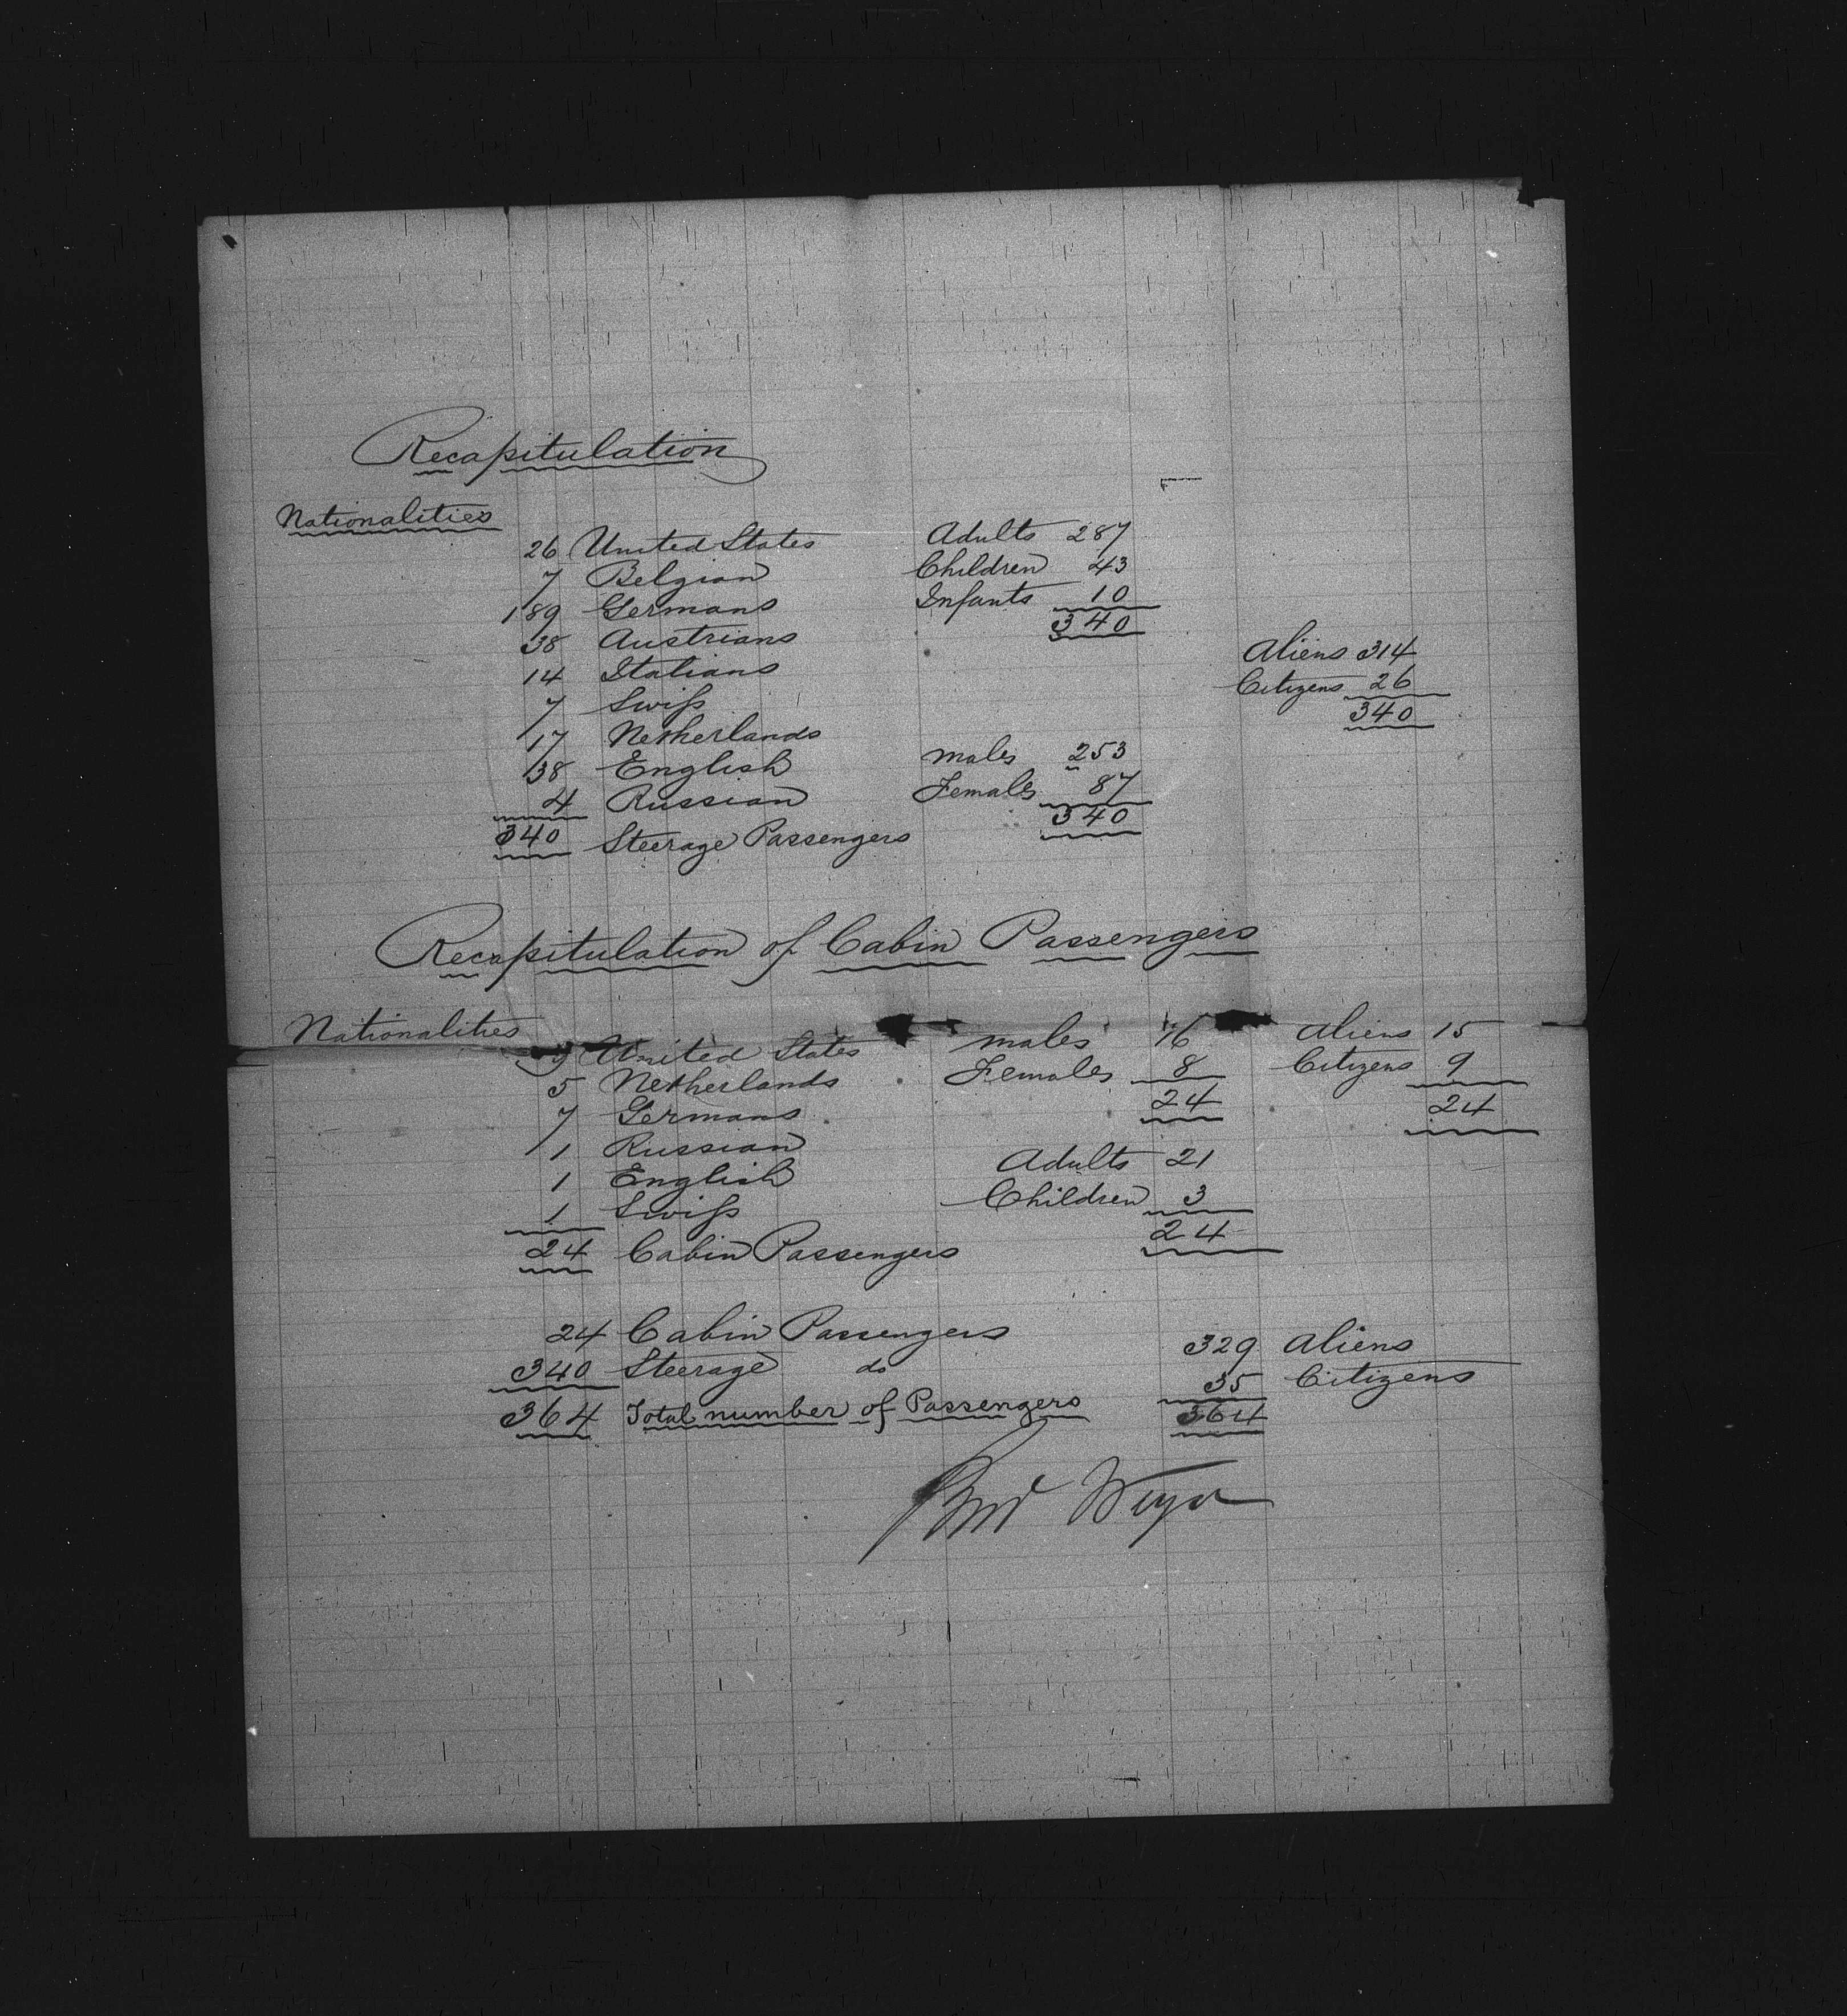 Recapitulation
Nationalities
26 United States Adults 287
7 Belgian Children 43
189 Germans Infants 10
38 Austrians 340
14 Italians Aliens 314
7 Swiss Citizens 26
17 Netherlands 340
38 English Males 253
4 Russian Females 87
340 Steerage Passengers 340
Recapitulation of Cabin Passengers
Nationalities
9 United States Males 16 Aliens 15
5 Netherlands Females 8 Citizens 9
7 Germans 24 24
1 Russian
1 English Adults 21
1 Swiss Children 3
24 Cabin Passengers 24
24 Cabin Passengers 329 Aliens
340 Steerage do 35 Citizens
364 Total number of Passengers 364